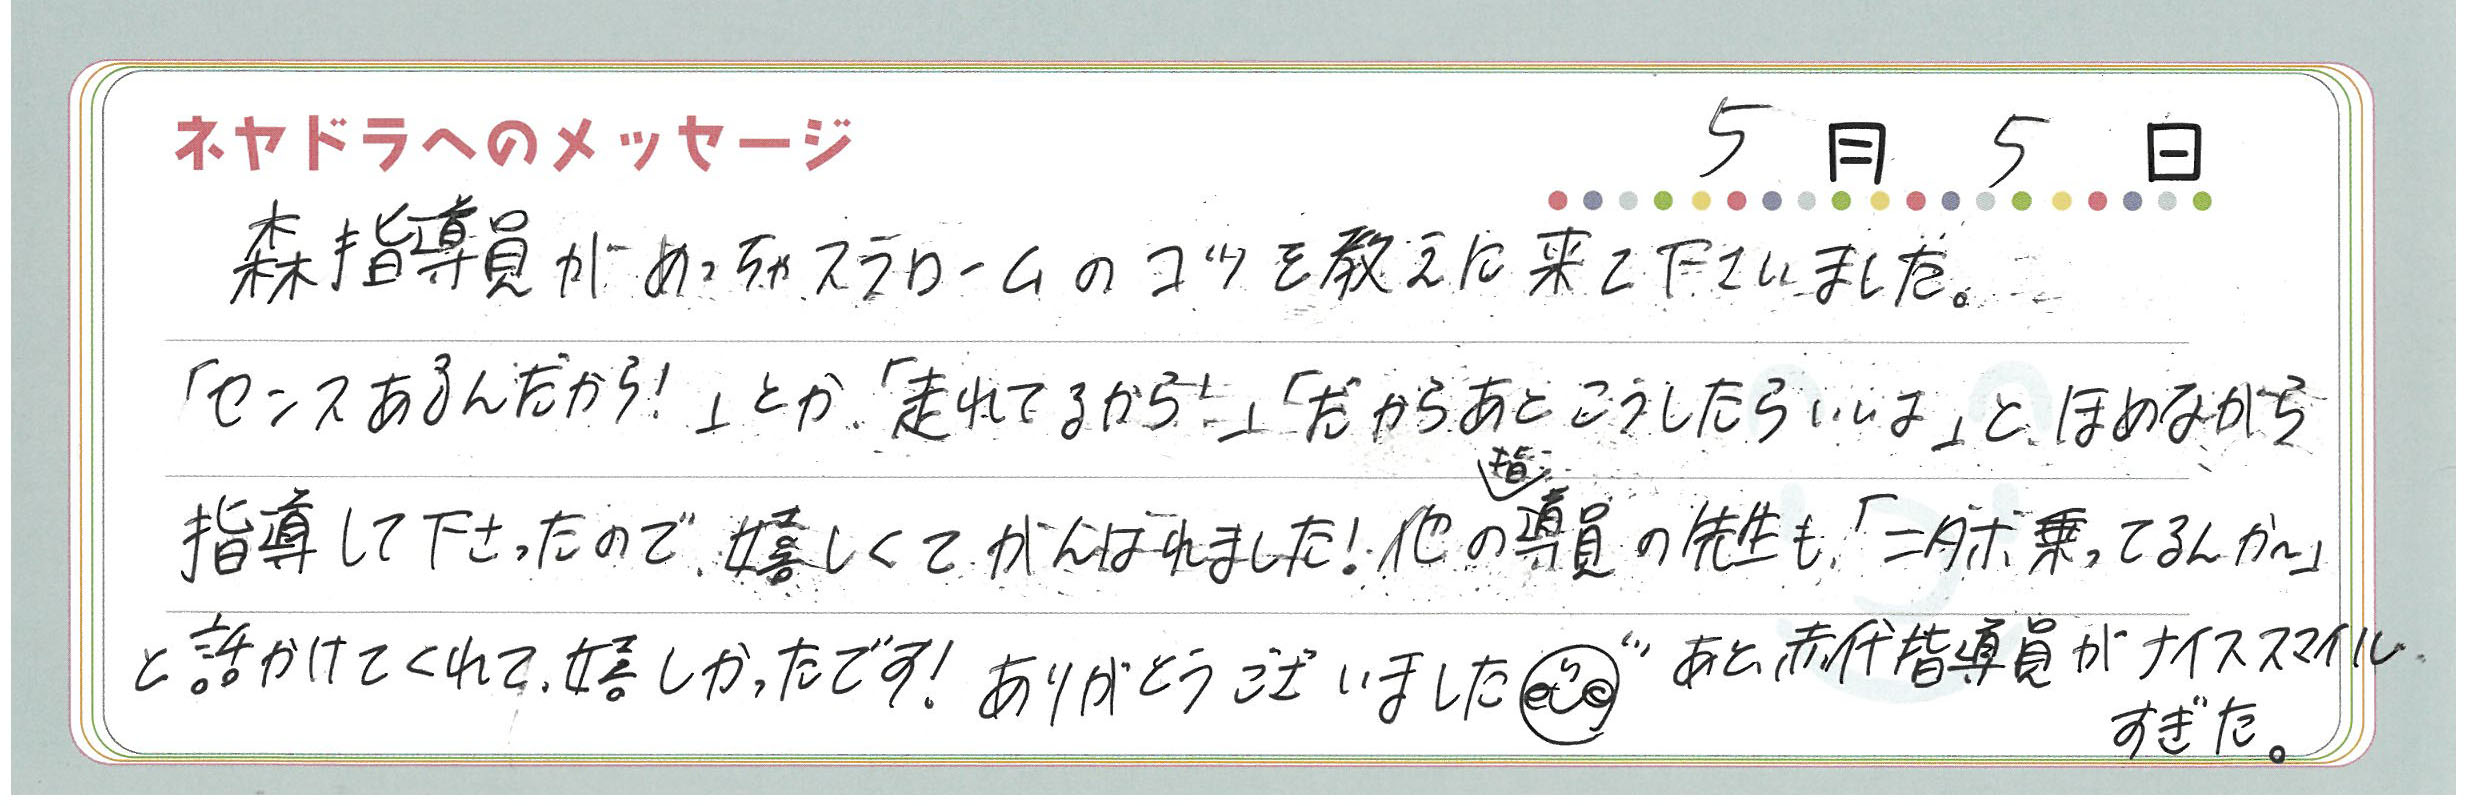 ネヤドラへのメッセージ
5月5日
森指導員がめっちゃスラロームのコツを教えに来て下さいました。
「センスあるんだから!」とか、「走れてるから!」「だからあとこうしたらいいよ」と、ほめながら
指導して下さったので、嬉しくてがんばれました!他の指導員の先生も、「ニーダボ乗ってるんか〜」
と話かけてくれて、嬉しかったです!ありがとうございました あと、赤代指導員がナイススマイル
すぎた。